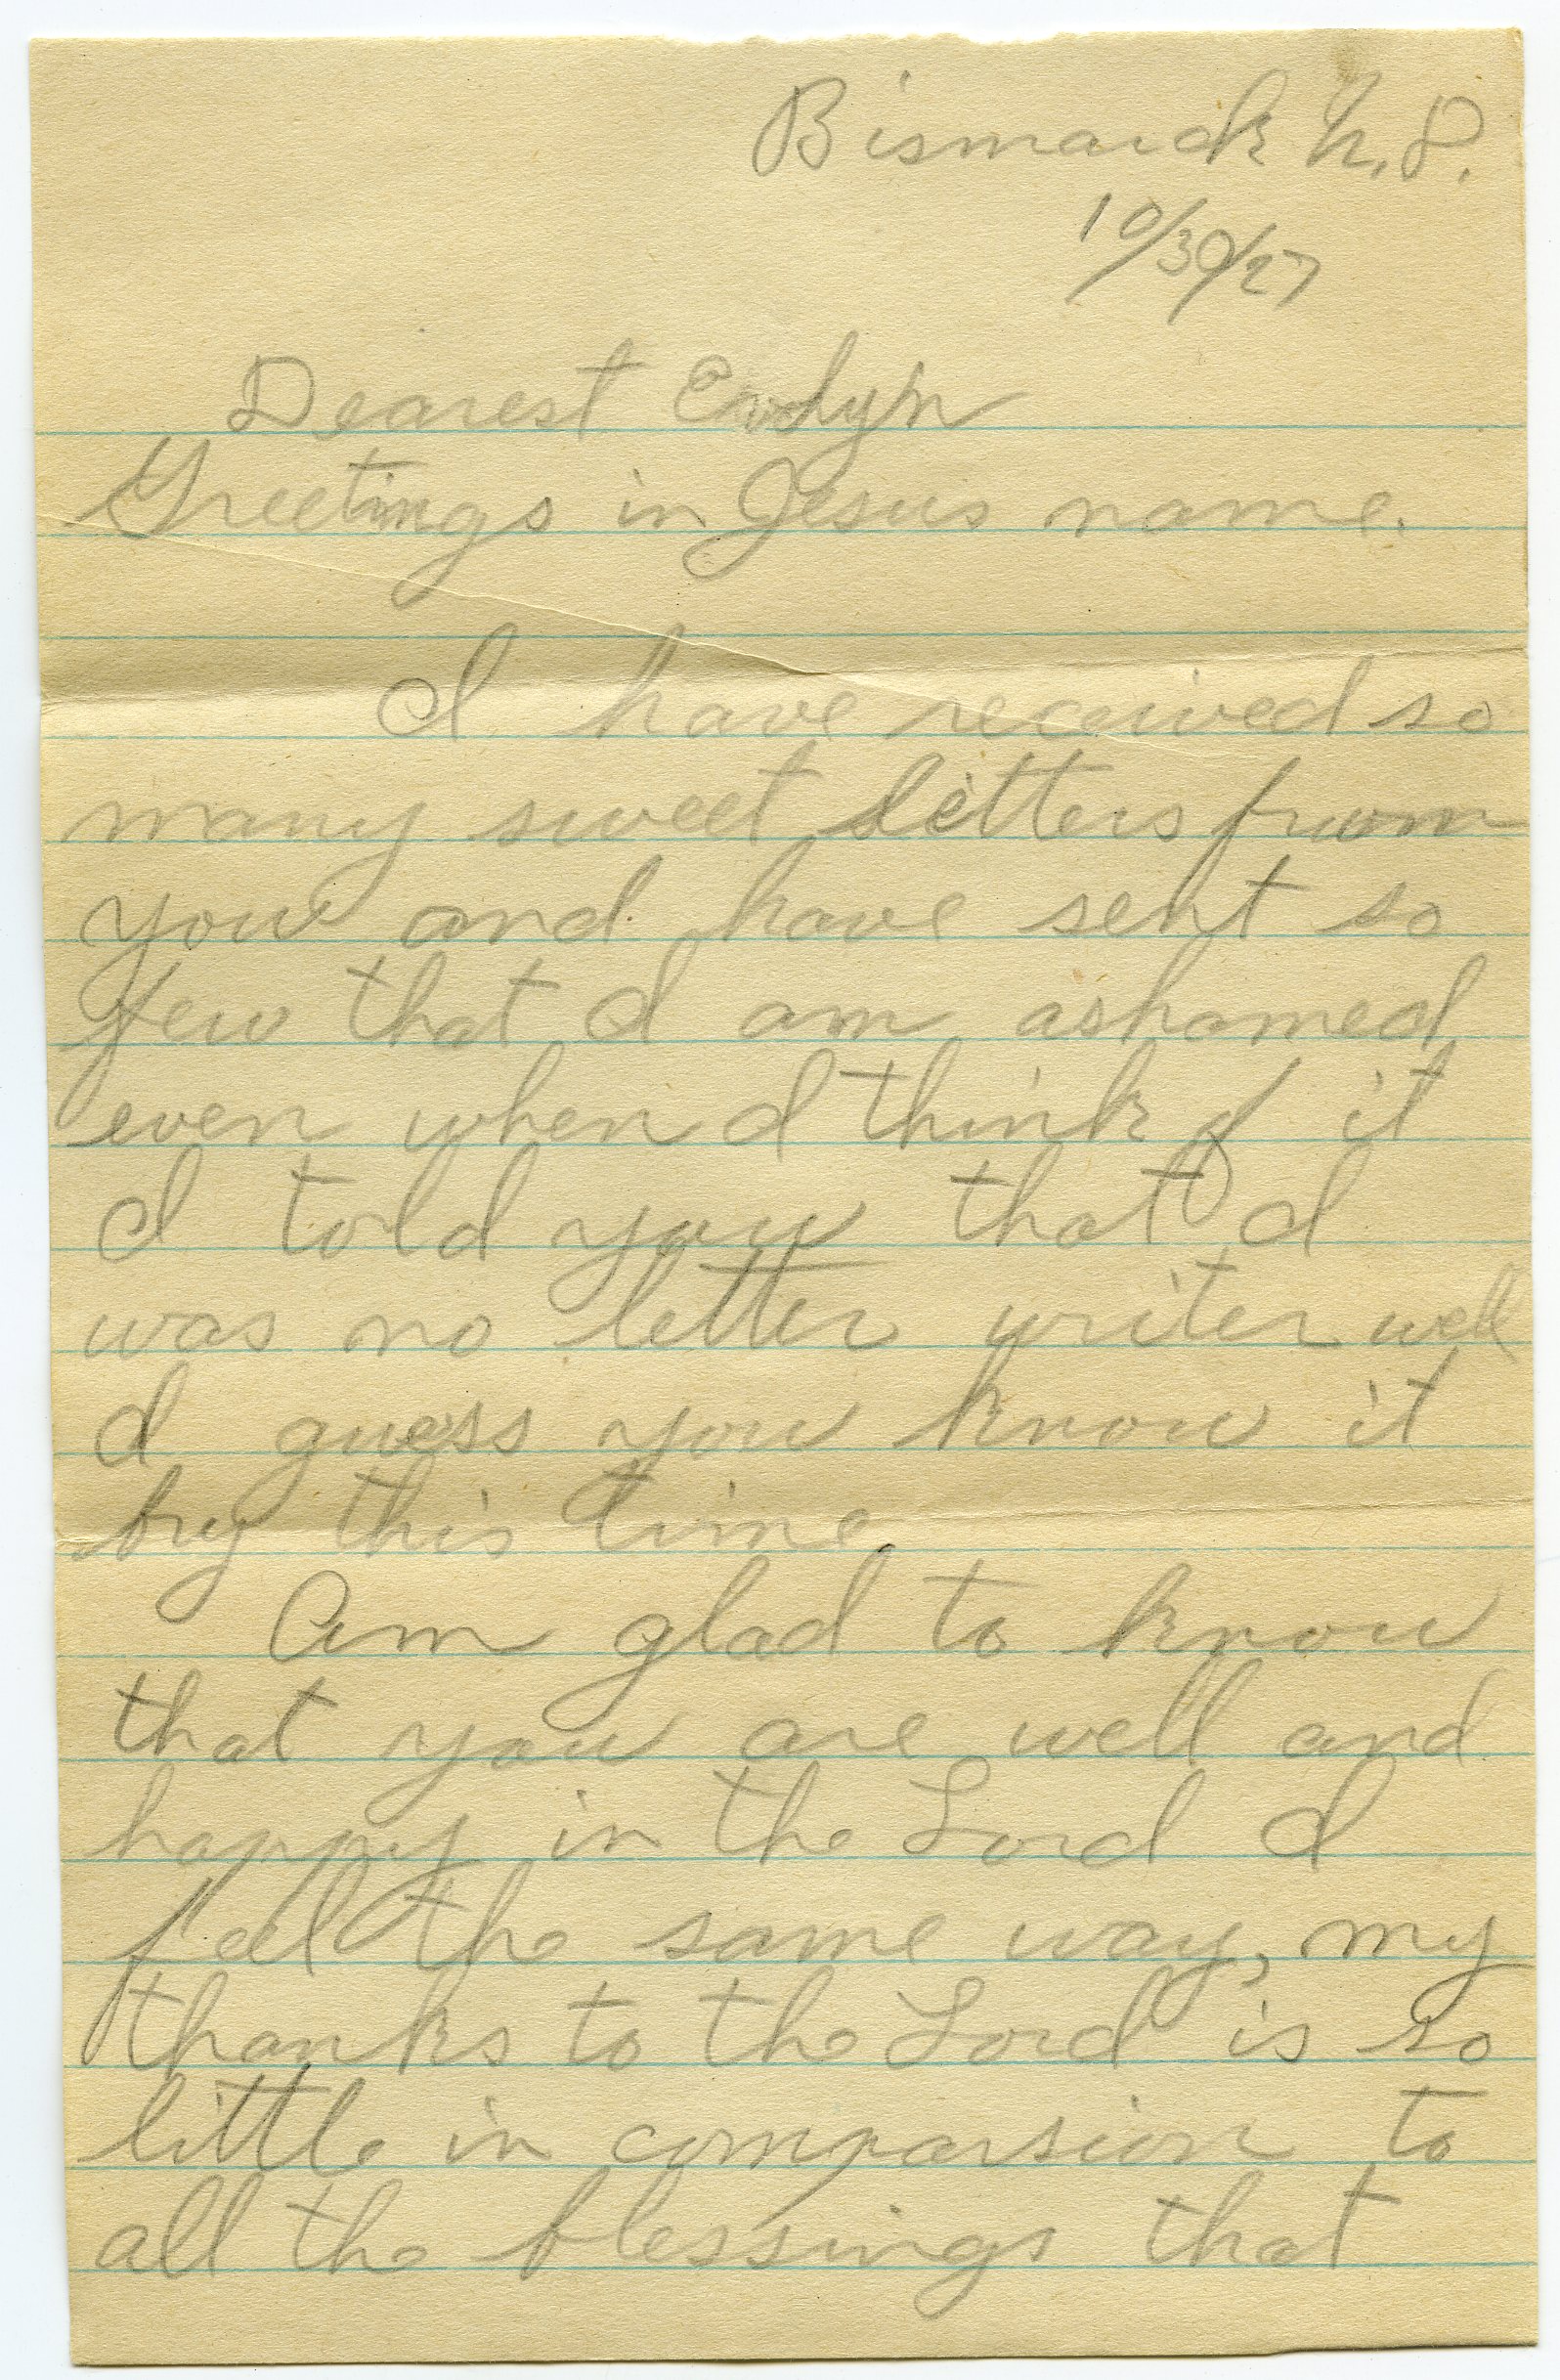 Bismarck N.D.
10/30/27
Dearest Evelyn
Greetings in Jesus name.
I have received so
many sweet letters from
you and have sent so
few that I am ashamed
even when I think of it
I told you that I
was no letter writer well
I guess you know it
by this time
Am glad to know
that you are well and
happy in the Lord I
feel the same way, my
thanks to the Lord is so
little in comparsion to
all the blessings that